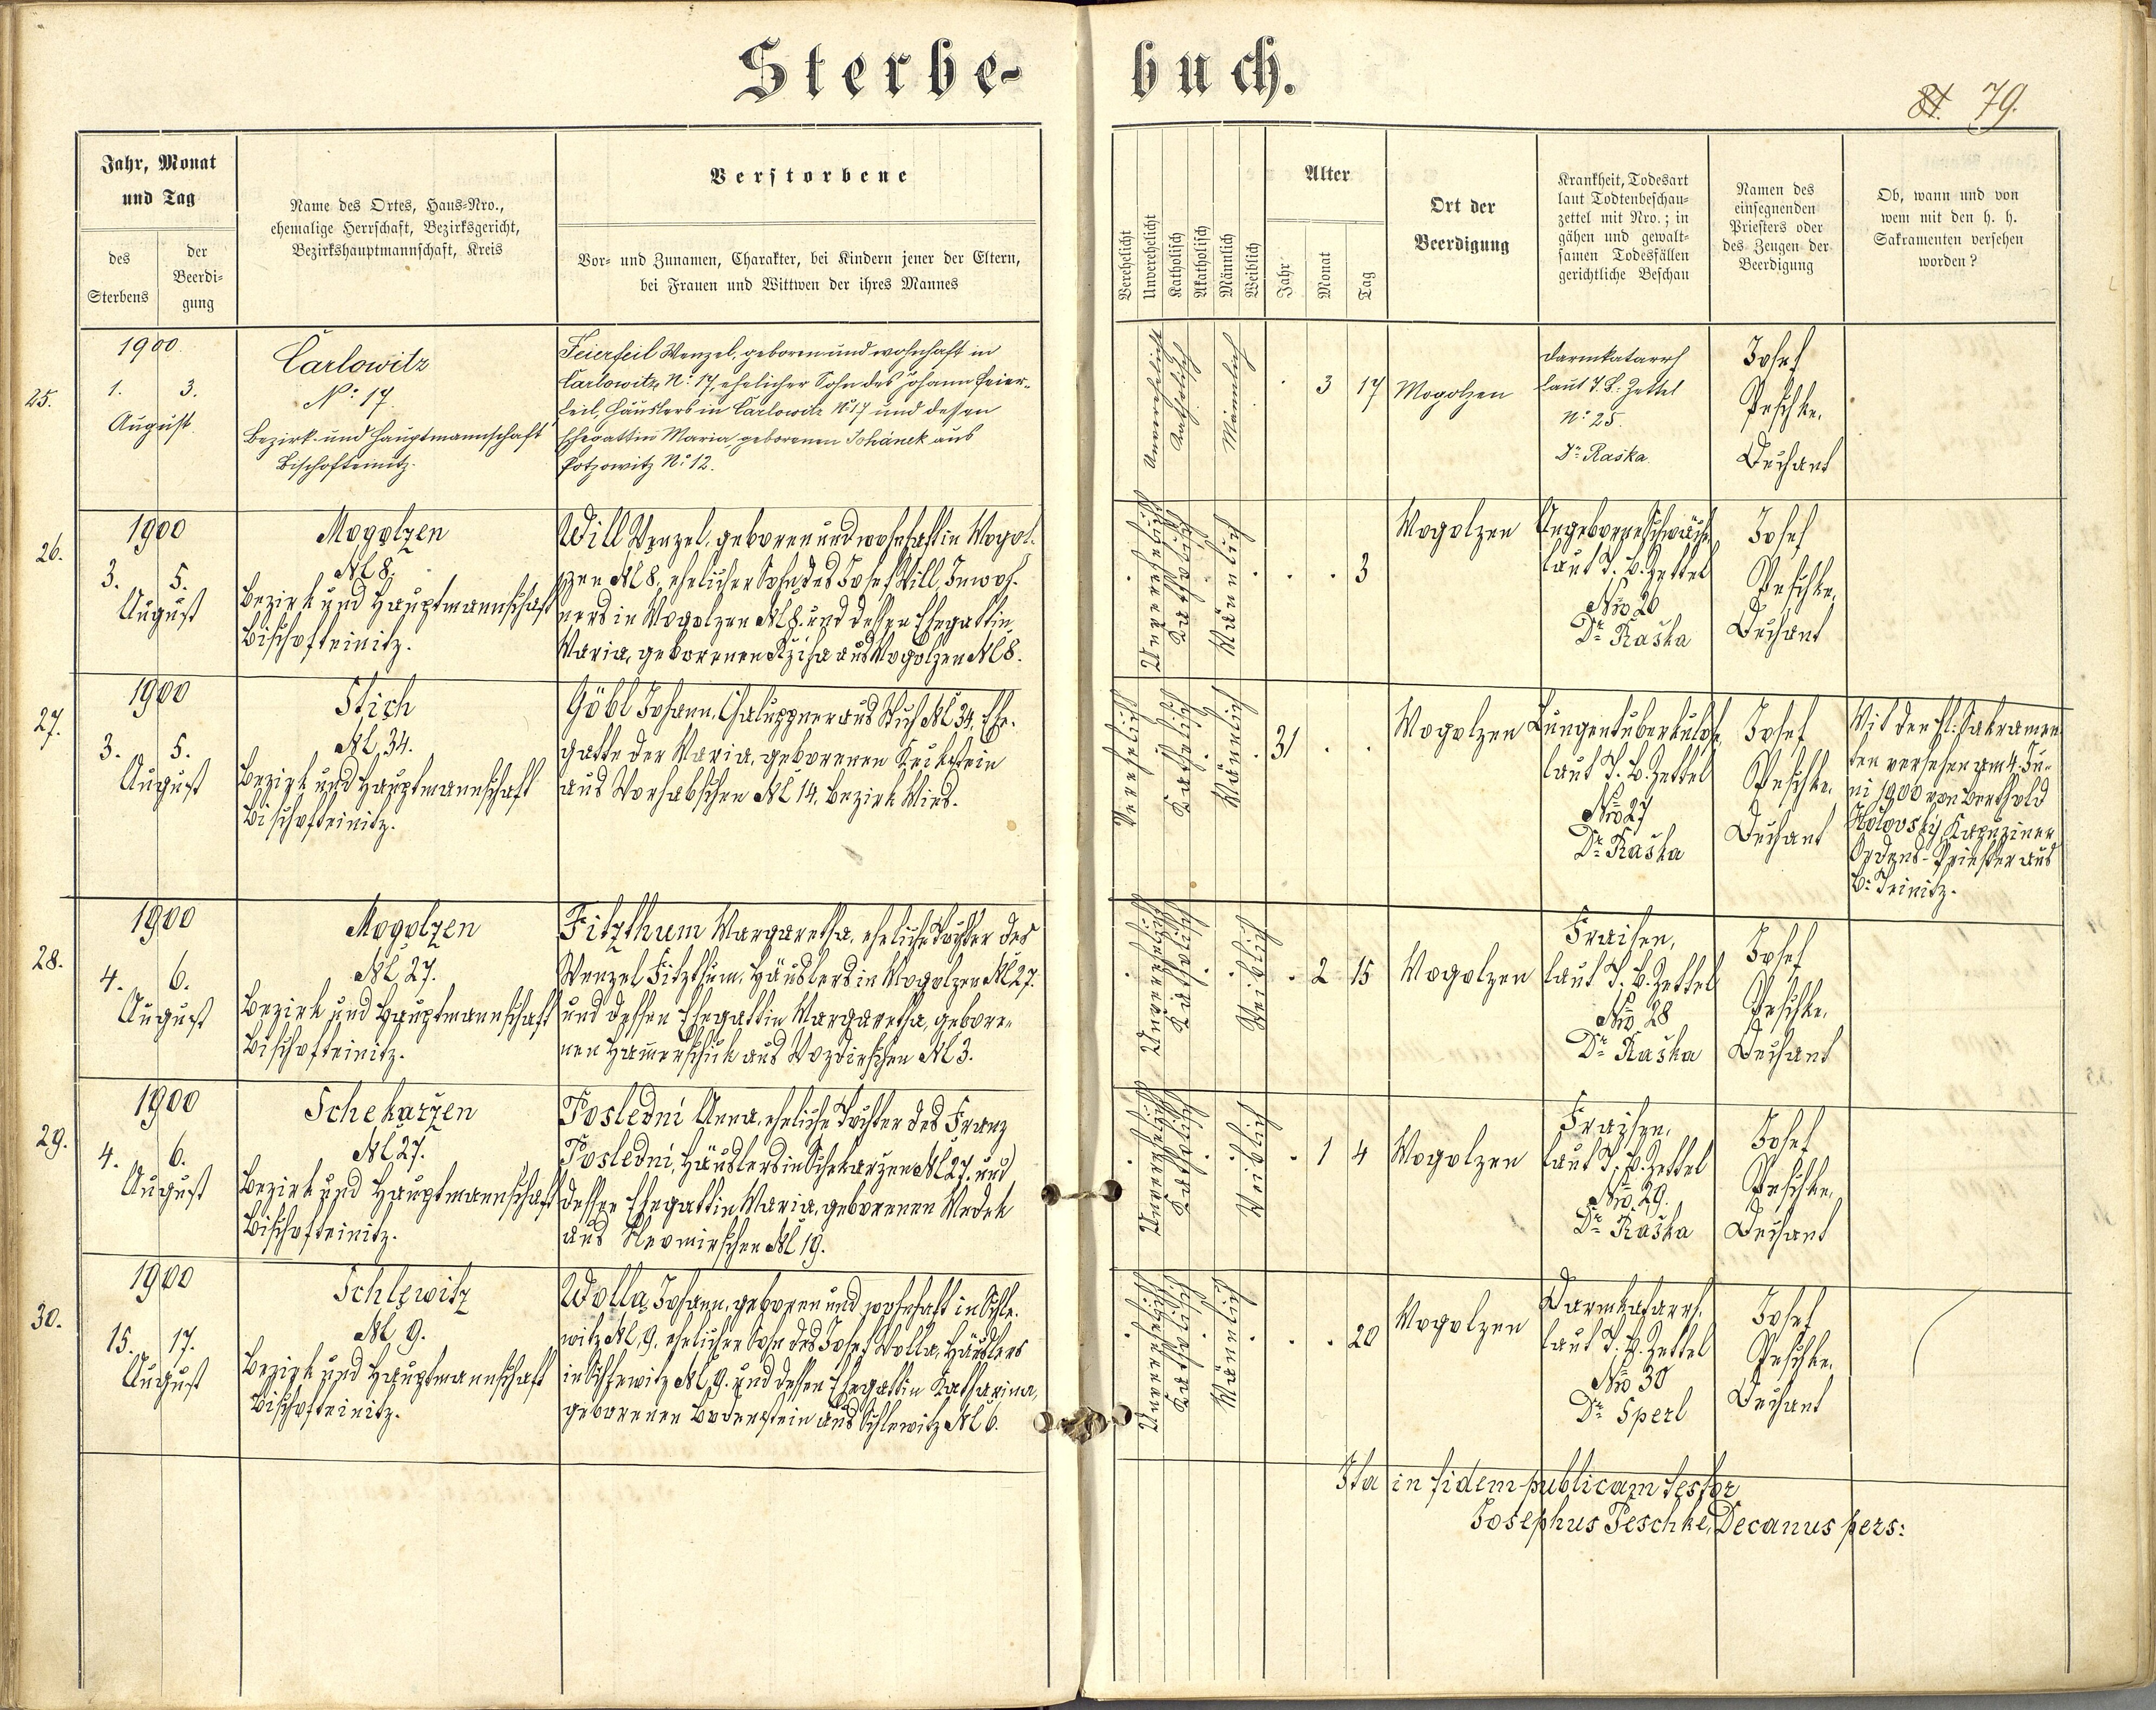 Sterbe-
buch.
81. 79.
Jahr, Monat
und Tag
des
Sterbens
der
Beerdi-
gung
Name des Ortes, Haus-Nro.,
ehemalige Herrschaft, Bezirksgericht,
Bezirkshauptmannschaft, Kreis
Verstorbene
Vor- und Zunamen, Charakter, bei Kindern jener der Eltern,
bei Frauen und Wittwen der ihres Mannes
Verehelicht
Unverehelicht
Katholisch
Akatholisch
Männlich
Weiblich
Alter
Jahr
Monat
Tag
Ort der
Beerdigung
Krankheit, Todesart
laut Todtenbeschau-
zettel mit Nro.; in
gähen und gewalt-
samen Todesfällen
gerichtliche Beschau
Namen des
einsegnenden
Priesters oder
des Zeugen der
Beerdigung
Ob, wann und von
wem mit den h. h.
Sakramenten versehen
worden?
25.
1900
1. 3.
August
Carlowitz
No: 17.
Bezirk und Hauptmannschaft
Bischofteinitz.
Feierfeil Wenzel, geboren und wohnhaft in
Carlowitz No: 17, ehelicher Sohn des Johann Feier-
feil, Häuslers in Carlowitz No 17 und dessen
Ehegattin Maria, geborenen Johánek aus
Potzowitz No: 12.
Unverehelicht
Katholisch
Männlich
. 3 17
Mogolzen
Darmkatarrh
laut T. B. Zettel
No: 25.
Dr. Raska.
Josef
Peschke,
Dechant
26.
1900
3. 5.
August
Mogolzen
NC 8.
Bezirk und Hauptmannschaft
Bischofteinitz.
Will Wenzel, geboren und wohnhaft in Mogol-
zen NC 8, ehelicher Sohn des Josef Will, Inwoh-
ners in Mogolzen NC 8. und dessen Ehegattin
Maria, geborenen Kziha aus Mogolzen NC 8.
Unverehelicht
Katholisch
Männlich
. . 3
Mogolzen
Angeborne Schwäche
laut T. B. Zettel
Nro 26
Dr. Raška
Josef
Peschke,
Dechant
27.
1900
3. 5.
August
Stich
NC 34.
Bezirk und Hauptmannschaft
Bischofteinitz.
Göbl Johann, Chaluppner aus Stich NC 34, Ehe-
gatte der Maria, geborenen
aus NC 14, Bezirk Mies.
Verehelicht
Katholisch
Männlich
31 . .
Mogolzen
Lungentuberkulose,
laut T. B. Zettel
Nro 27
Dr. Raška
Josef
Peschke,
Dechant
Mit den hl. Sakramen-
ten versehen am 4. Ju-
ni 1900 von Berthold
Kapuziner
Ordens-Priester aus
B: Teinitz.
28.
1900
4. 6.
August
Mogolzen
NC 27.
Bezirk und Hauptmannschaft
Bischofteinitz.
Fitzthum Margaretha, eheliche Tochter des
Wenzel Fitzthum, Häuslers in Mogolzen NC 27.
und dessen Ehegattin Margaretha, gebore-
nen aus NC 3.
Unverehelicht
Katholisch
Weiblich
. 2 15
Mogolzen
Fraisen,
laut T. B. Zettel
Nro 28
Dr. Raška
Josef
Peschke,
Dechant
29.
1900
4. 6.
August
Schekarzen
NC 27.
Bezirk und Hauptmannschaft
Bischofteinitz.
Posledni Anna, eheliche Tochter des Franz
Posledni, Häuslers in Schekarzen NC 27. und
dessen Ehegattin Maria, geborenen
aus NC 19.
Unverehelicht
Katholisch
Weiblich
. 1 4
Mogolzen
Fraisen,
laut T. B. Zettel
Nro 29.
Dr. Raška
Josef
Peschke,
Dechant
30.
1900
15. 17.
August
Schlewitz
NC 9.
Bezirk und Hauptmannschaft
Bischofteinitz.
Wolla Johann, geboren und wohnhaft in Schle-
witz NC 9. ehelicher Sohn des Josef Wolla, Häuslers
in Schlewitz NC 9. und dessen Ehegattin Katharina,
geborenen Bodenstein aus Schlewitz NC 6.
Unverehelicht
Katholisch
Männlich
. . 20
Mogolzen
Darmkatarrh,
laut T. B. Zettel
Nro 30
Dr. Sperl
Josef
Peschke,
Dechant
Ita in fidem publicam testor
Josephus Peschke, Decanus pers: